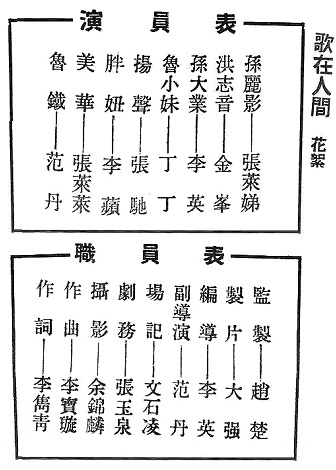 歌在人間 花絮
演員表
孫麗影——張萊娣
洪志音——金峯
孫大業——李英
魯小妹——丁丁
揚聲——張馳
胖妞——李蘋
美華——張萊萊
魯鐵——范丹
職員表
監製——趙楚
製片——大强
編導——李英
副導演——范丹
場記——文石凌
劇務——張玉泉
攝影——余錦麟
作曲——李寶璇
作詞——李雋青